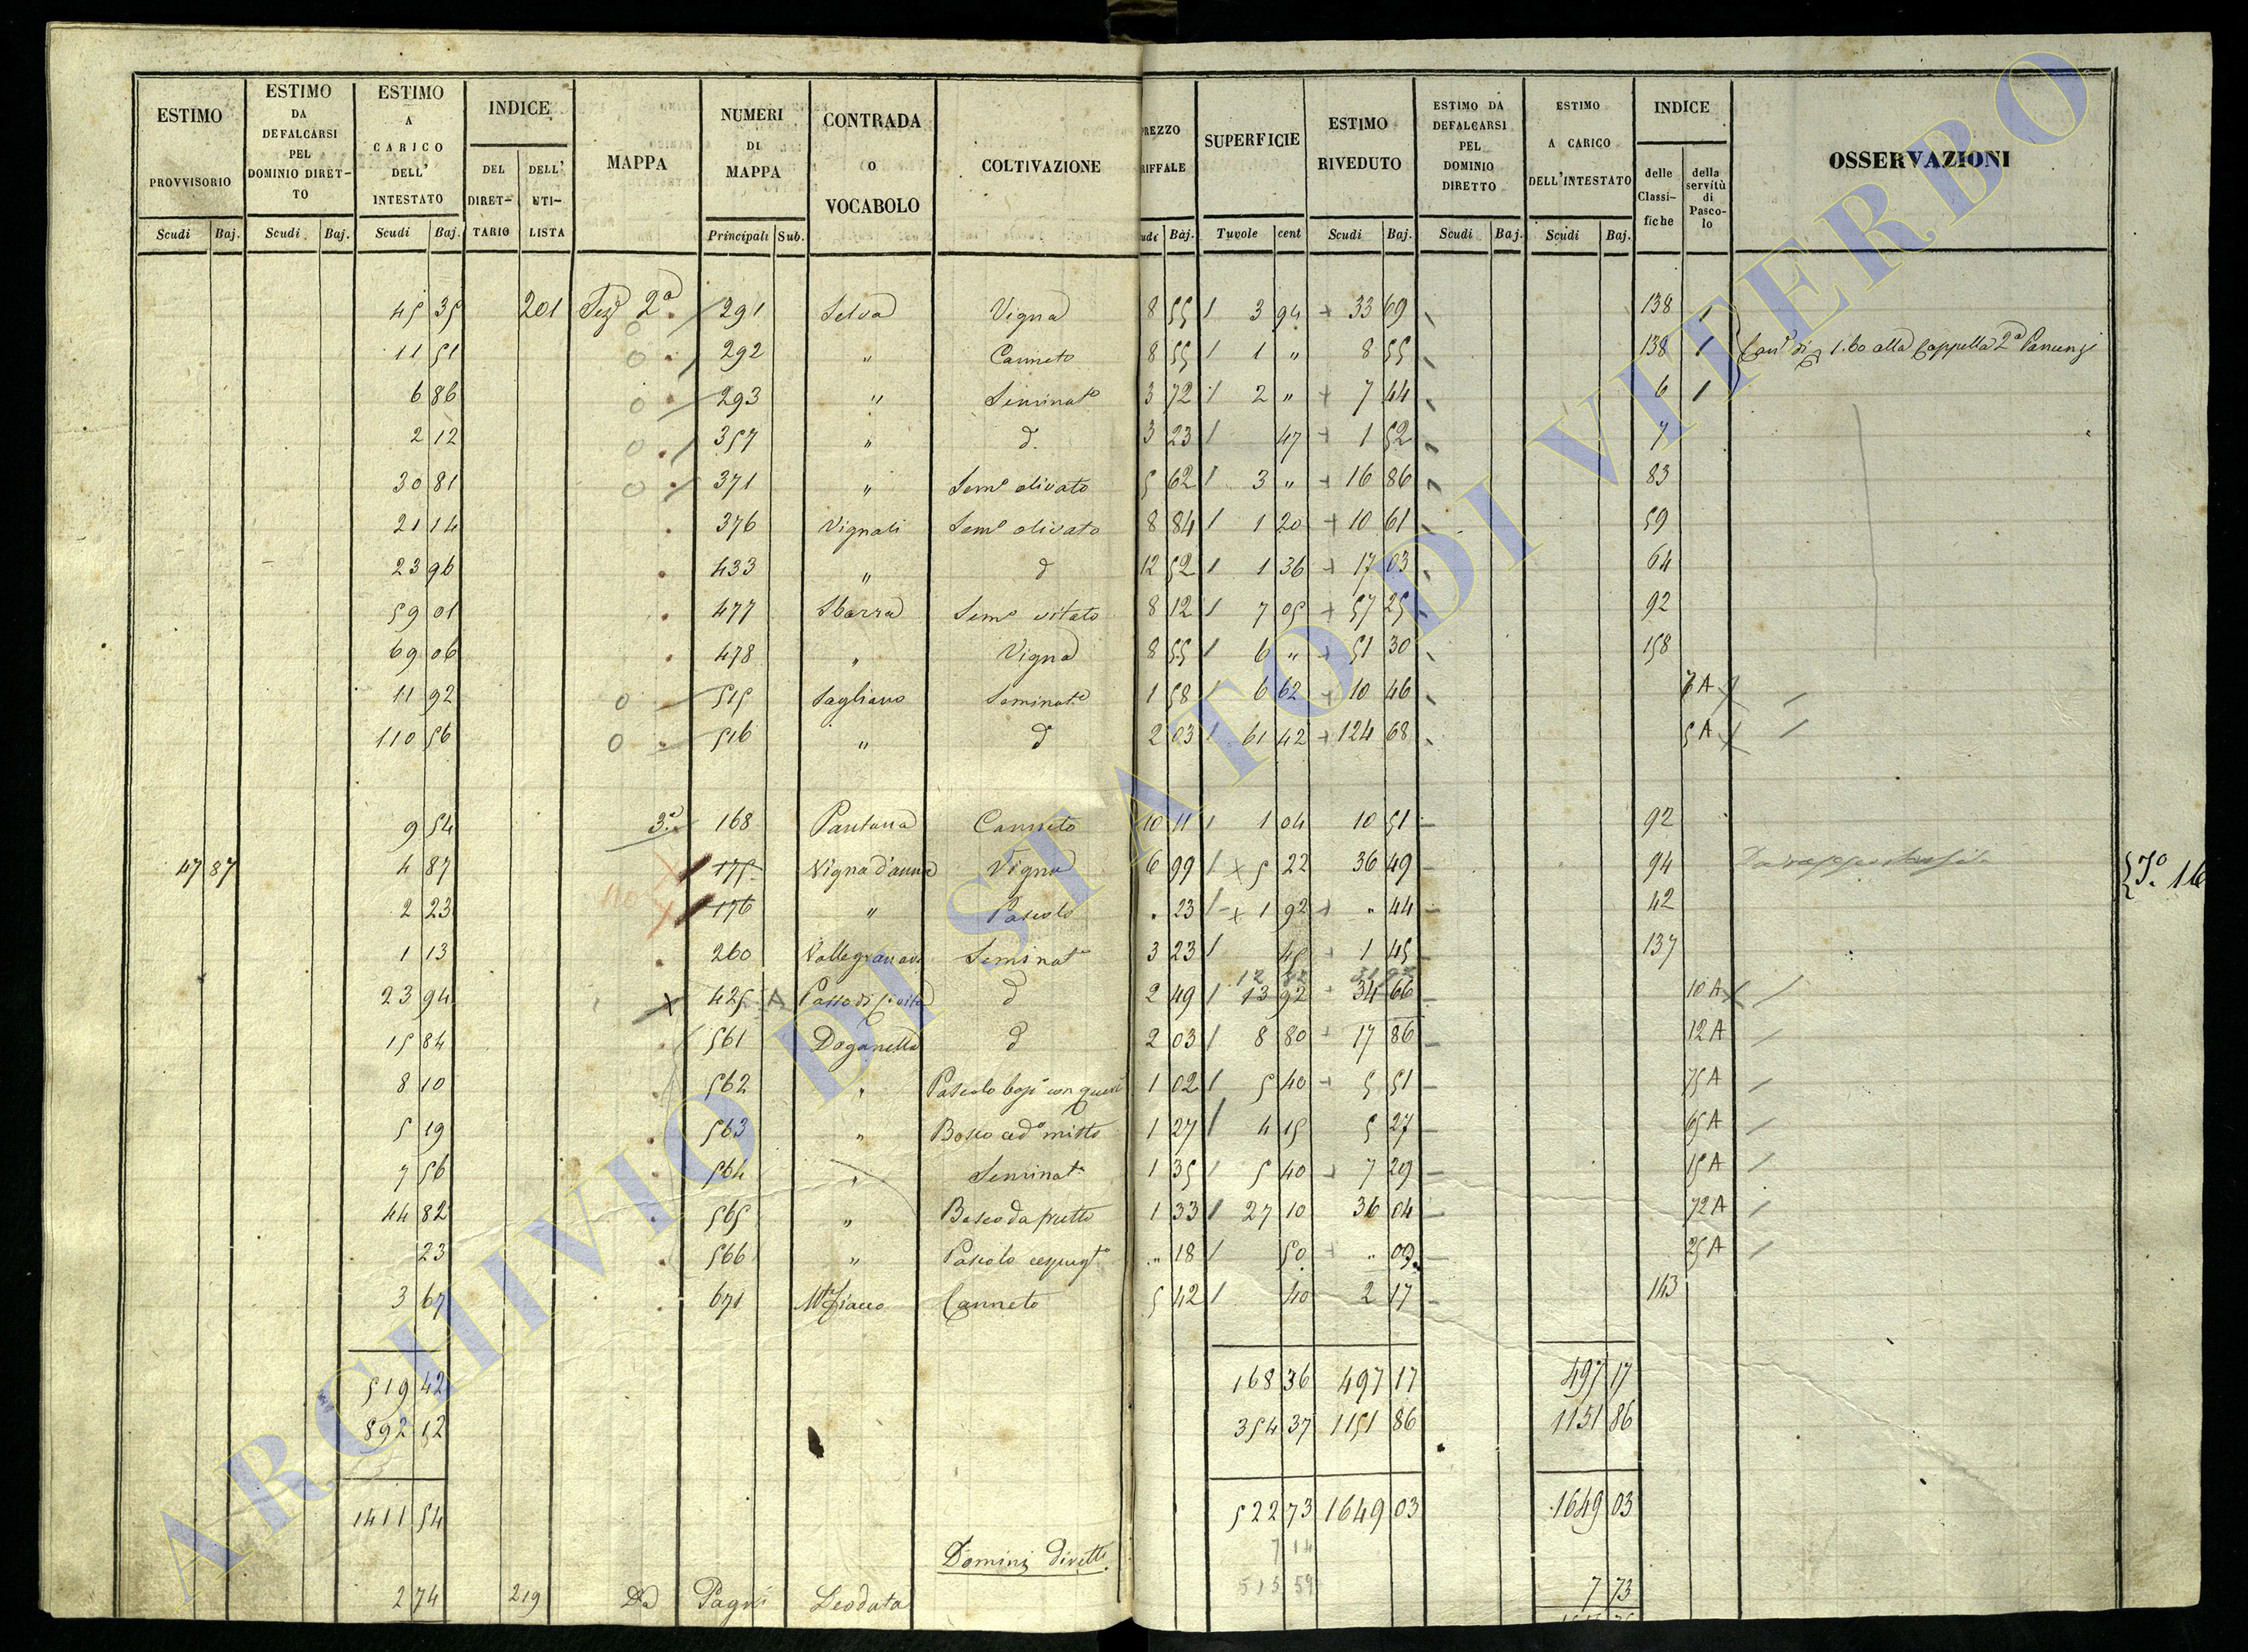 ESTIMO PROVVISORIO Scudi Baj.
ESTIMO DA DEFALCARSI PEL DOMINIO DIRET-TO Scudi Baj.
ESTIMO A CARICO DELL' INTESTATO Scudi Baj.
INDICE DEL DIRET-TARIO DELL' UTI-LISTA
MAPPA
NUMERI DI MAPPA Principali Sub.
CONTRADA O VOCABOLO
COLTIVAZIONE
PREZZO RIFFALE udi Baj.
SUPERFICIE Tuvole cent
ESTIMO RIVEDUTO Scudi Baj.
ESTIMO DA DEFALCARSI PEL DOMINIO DIRETTO Scudi Baj.
ESTIMO A CARICO DELL'INTESTATO Scudi Baj.
INDICE delle Classi-fiche della servitù di Pasco-lo
OSSERVAZIONI
45 35 201 2a 291 Selva Vigna 8 55 3 94 33 69 138 1
11 51 292 " Canneto 8 55 1 " 8 55 138 1 1.60 alla Cappella
6 86 293 " Seminato 3 72 2 " 7 44 6 1
2 12 357 " d. 3 23 47 1 52 7
30 81 371 " Semo olivato 5 62 3 " 16 86 83
21 14 376 Vignali Semo olivato 8 84 1 20 10 61 59
23 96 433 " d 12 52 1 36 17 03 64
59 01 477 Sbarra Semo vitato 8 12 7 05 57 25 92
69 06 478 " Vigna 8 55 6 " 51 30 158
11 92 515 Sagliano Seminato 1 58 6 62 10 46 7 A
110 56 516 " d 2 03 61 42 124 68 5 A
9 54 3a 168 Pantana Canneto 10 11 1 04 10 51 92
47 87 4 87 175 Vigna d'anna Vigna 6 99 5 22 36 49 94
2 23 176 " Pascolo . 23 1 92 " 44 42
1 13 260 Seminato 3 23 45 1 45 137
23 94 425 A d 2 49 13 92 34 66 10 A
15 84 561 Doganella d 2 03 8 80 17 86 12 A
8 10 562 " Pascolo 1 02 5 40 5 51 75 A
5 19 563 " Bosco cedo misto 1 27 4 15 5 27 65 A
7 56 564 " Seminato 1 35 5 40 7 29 15 A
44 82 565 " Bosco da frutto 1 33 27 10 36 04 72 A
23 566 " Pascolo cespugo " 18 50 " 09 25 A
3 67 671 Canneto 5 42 40 2 17 143
519 42 168 36 497 17 497 17
892 12 354 37 1151 86 1151 86
1411 54 522 73 1649 03 1649 03
Domini diretti 7 14
515 59
2 74 219 Da Pagni Leodata 7 73
ARCHIVIO DI STATO DI VITERBO